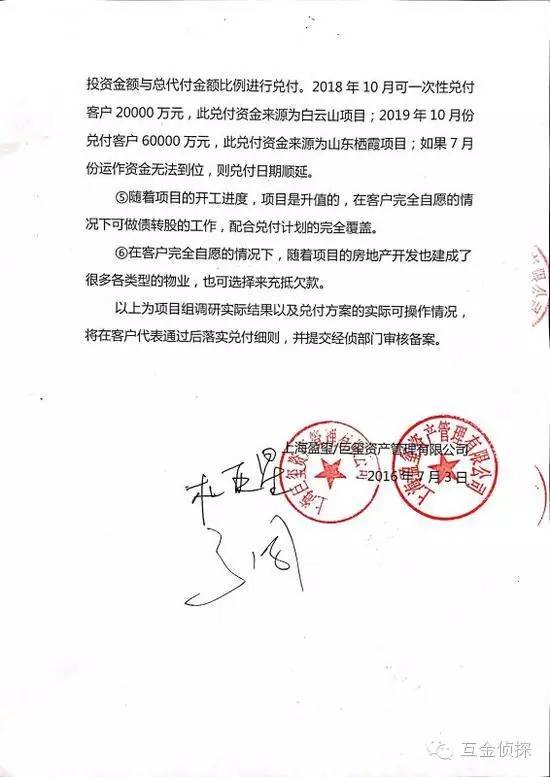 投资金额与总代付金额比例进行兑付。2018 年 10 月可一次性兑付
客户 20000 万元，此兑付资金来源为白云山项目；2019 年 10 月份
兑付客户 60000 万元，此兑付资金来源为山东栖霞项目；如果 7 月
份运作资金无法到位，则兑付日期顺延。
⑤随着项目的开工进度，项目是升值的，在客户完全自愿的情
况下可做债转股的工作，配合兑付计划的完全覆盖。
⑥在客户完全自愿的情况下，随着项目的房地产开发也建成了
很多各类型的物业，也可选择来充抵欠款。
以上为项目组调研实际结果以及兑付方案的实际可操作情况，
将在客户代表通过后落实兑付细则，并提交经侦部门审核备案。
上海盈玺/巨玺资产管理有限公司
2016 年 7 月 3 日
上海巨玺资产管理有限公司
上海盈玺资产管理有限公司
限公司
杜亚星
互金侦探